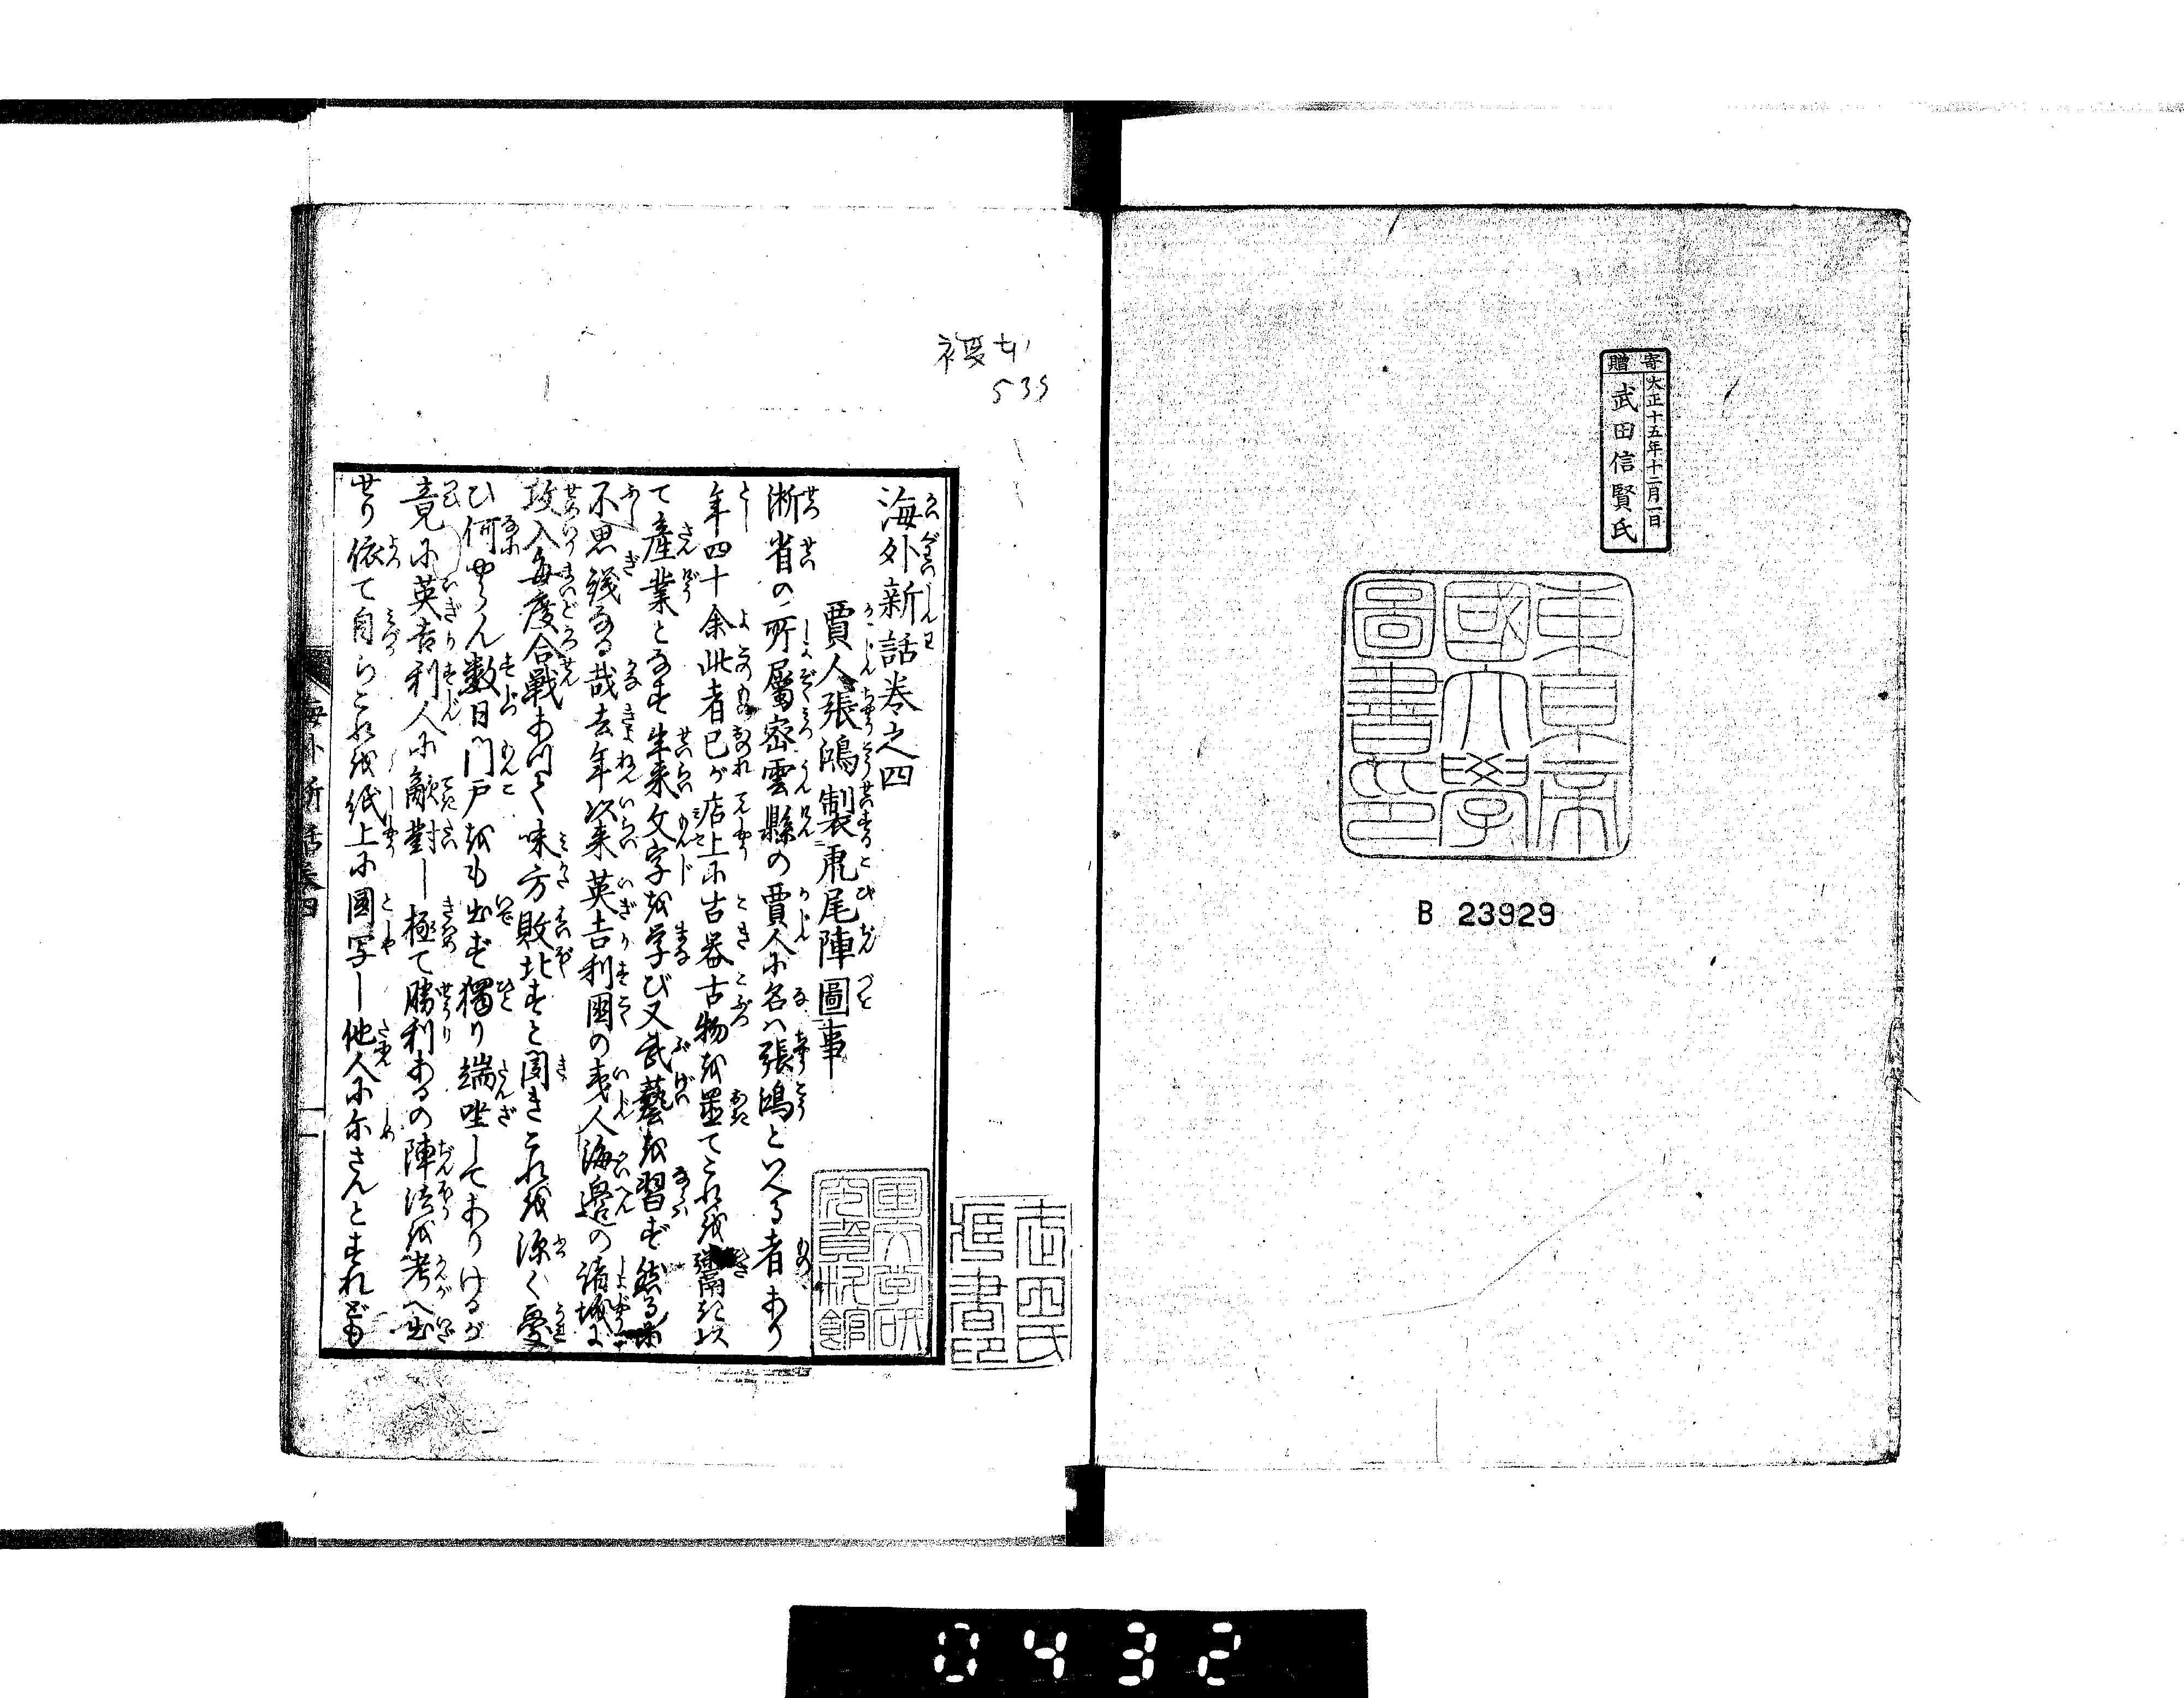 寄贈
大正十五年十二月一日
武田信賢氏
東京帝
國大學
圖書印
B 23929
複本
535
海外新話巻之四
賈人張鴻製虎尾陣圖事
浙省の所屬密雲縣の賈人に名ハ張鴻といへる者あり
年四十余此者己が店上に古器古物を置てこれを鬻ぎ以
て産業となす生来文字を学び又武藝を習ず然るに
不思議なる哉去年以来英吉利國の夷人海邊の諸城に
攻入毎度合戦あつて味方敗北すと聞きこれを深く憂
ひ何やらん数日門戸をも出ず獨り端坐してありけるが
竟に英吉利人に敵對し極て勝利あるの陣法を考へ出
せり依て自らこれを紙上に圖写し他人に示さんとすれども
海外新話巻四
一
國文學研
究資料館
印
0432